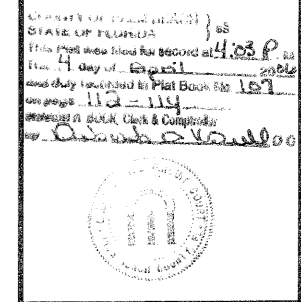 COUNTY OF PALM BEACH } SS
STATE OF FLORIDA
This Plat was filed for record at 4:03 P. M.
This 4 day of April 2006
and duly recorded in Plat Book No. 107
on page 112-114
BOCK, Clerk & Comptroller
by